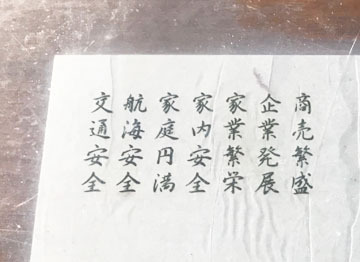 商売繁盛
企業発展
家業繁栄
家内安全
家庭円満
航海安全
交通安全